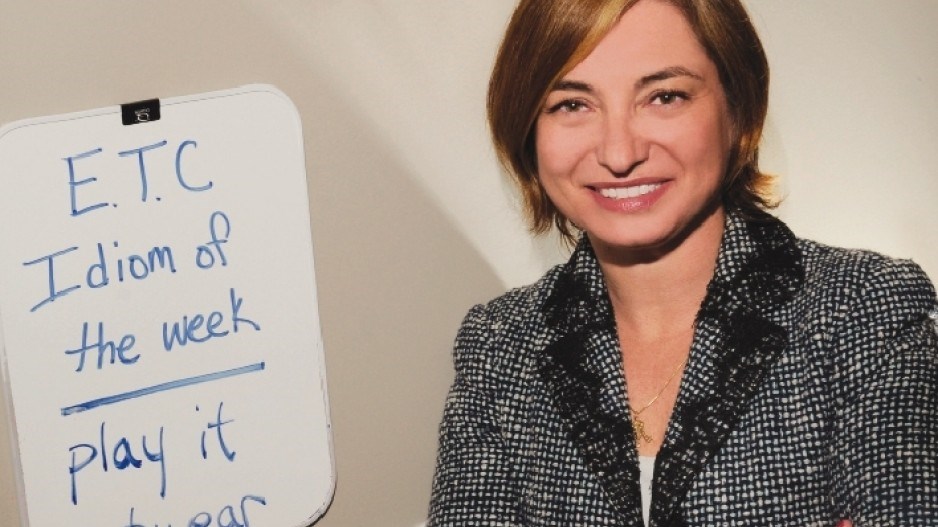 E.T.C
Idiom of
the week
play it
ear